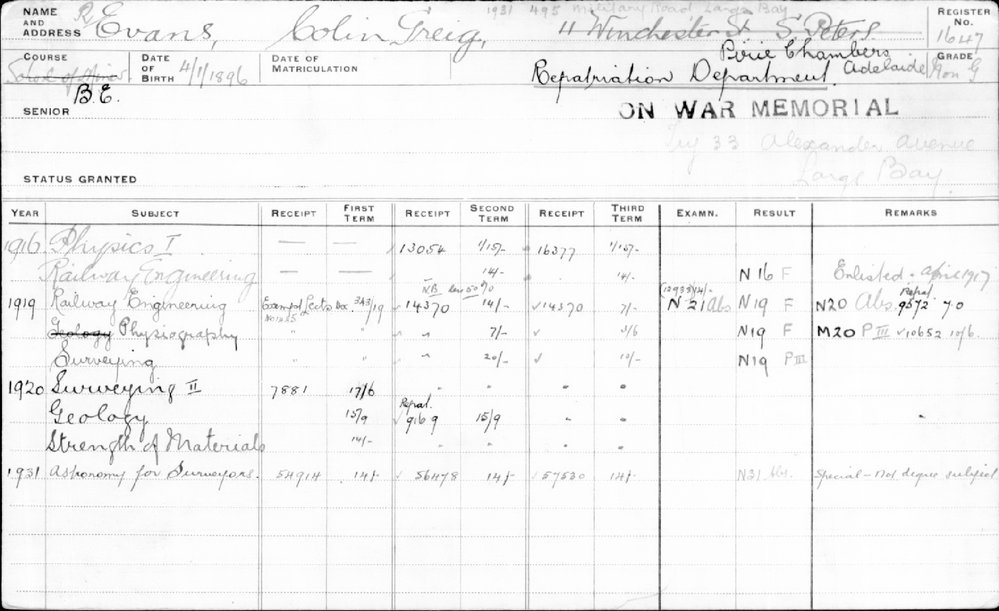 NAME AND ADDRESS R Evans, Colin Greig, 1931 495 Military Road Largs Bay 11 Winchester St S. Peters REGISTER No. 1647
COURSE School of Mines DATE OF BIRTH 4/1/1896 DATE OF MATRICULATION Pirie Chambers Adelaide GRADE Non G
Repatriation Department
B.E.
SENIOR
ON WAR MEMORIAL
Try 33 Alexander Avenue
Largs Bay.
STATUS GRANTED
YEAR SUBJECT RECEIPT FIRST TERM RECEIPT SECOND TERM RECEIPT THIRD TERM EXAMN. RESULT REMARKS
1916 Physics I — — 13054 1/15/- 16377 1/15/-
Railway Engineering — — 14/- 14/- N16 F Enlisted - April 1917
NB less 50%
1919 Railway Engineering Exempt Lects Dec 19 14370 14/- 14370 7/- N21 Abs N19 F N20 Abs. Repat. 9572 70
Geology Physiography " " " 7/- 3/6 N19 F M20 P III 10652 10/6.
Surveying " " " 20/- 10/- N19 P III
1920 Surveying II 7881 17/6 " " " "
Geology 15/9 Repat. 9169 15/9 " " "
Strength of Materials 14/- " " "
1931 Astronomy for Surveyors. 54914 14/- 56478 14/- 57530 14/- N31 Abs. Special - Not degree subject